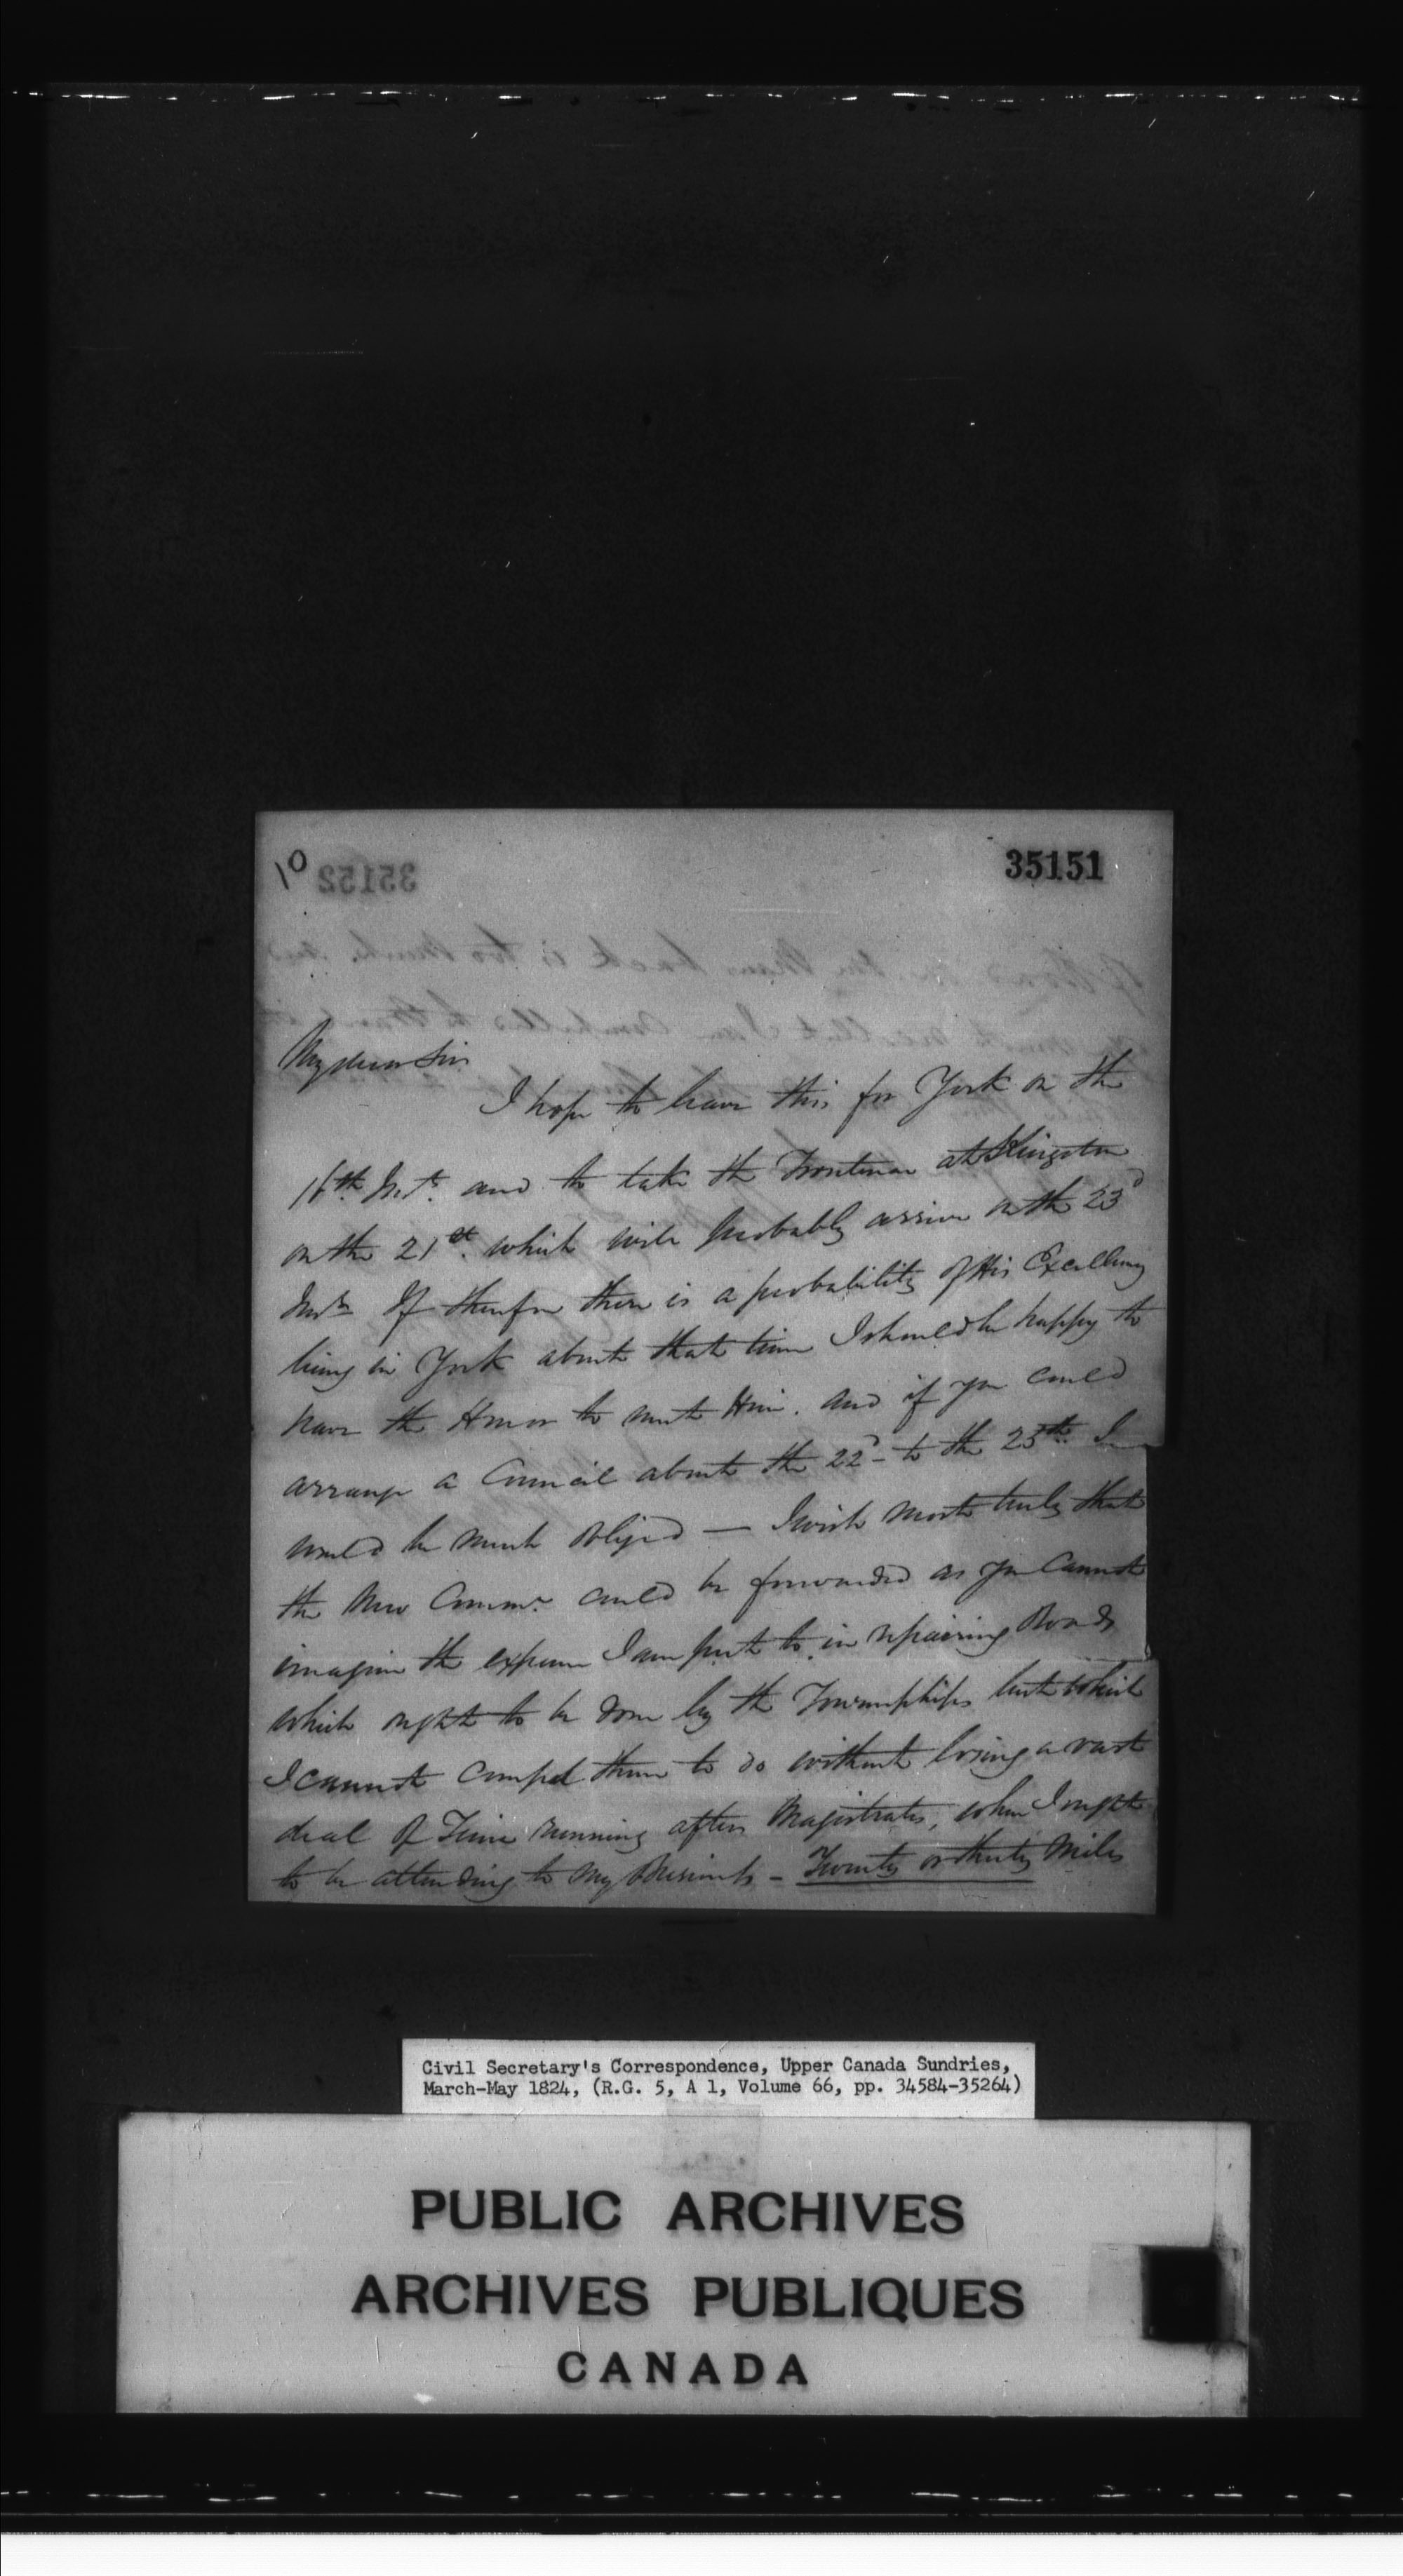 10
35151
My dear Sir
I hope to leave this for York on the
16th Inst. and to take the Frontenac at Kingston
on the 21st. which will probably arrive on the 23d
Inst. If therefore there is a probability of His Excellency
being in York about that time I should be happy to
have the Honor to meet Him. and if you could
arrange a Council about the 22d to the 25th I
would be much obliged — I wish most truly that
the New Commn. could be forwarded as you Cannot
imagine the expense I am put to in repairing Roads
which ought to be done by the Townships but which
I cannot compel them to do without losing a vast
deal of Time running after Magistrates, when I ought
to be attending to my Business - Twenty or thirty Miles
Civil Secretary's Correspondence, Upper Canada Sundries,
March-May 1824, (R.G. 5, A 1, Volume 66, pp. 34584-35264)
PUBLIC ARCHIVES
ARCHIVES PUBLIQUES
CANADA